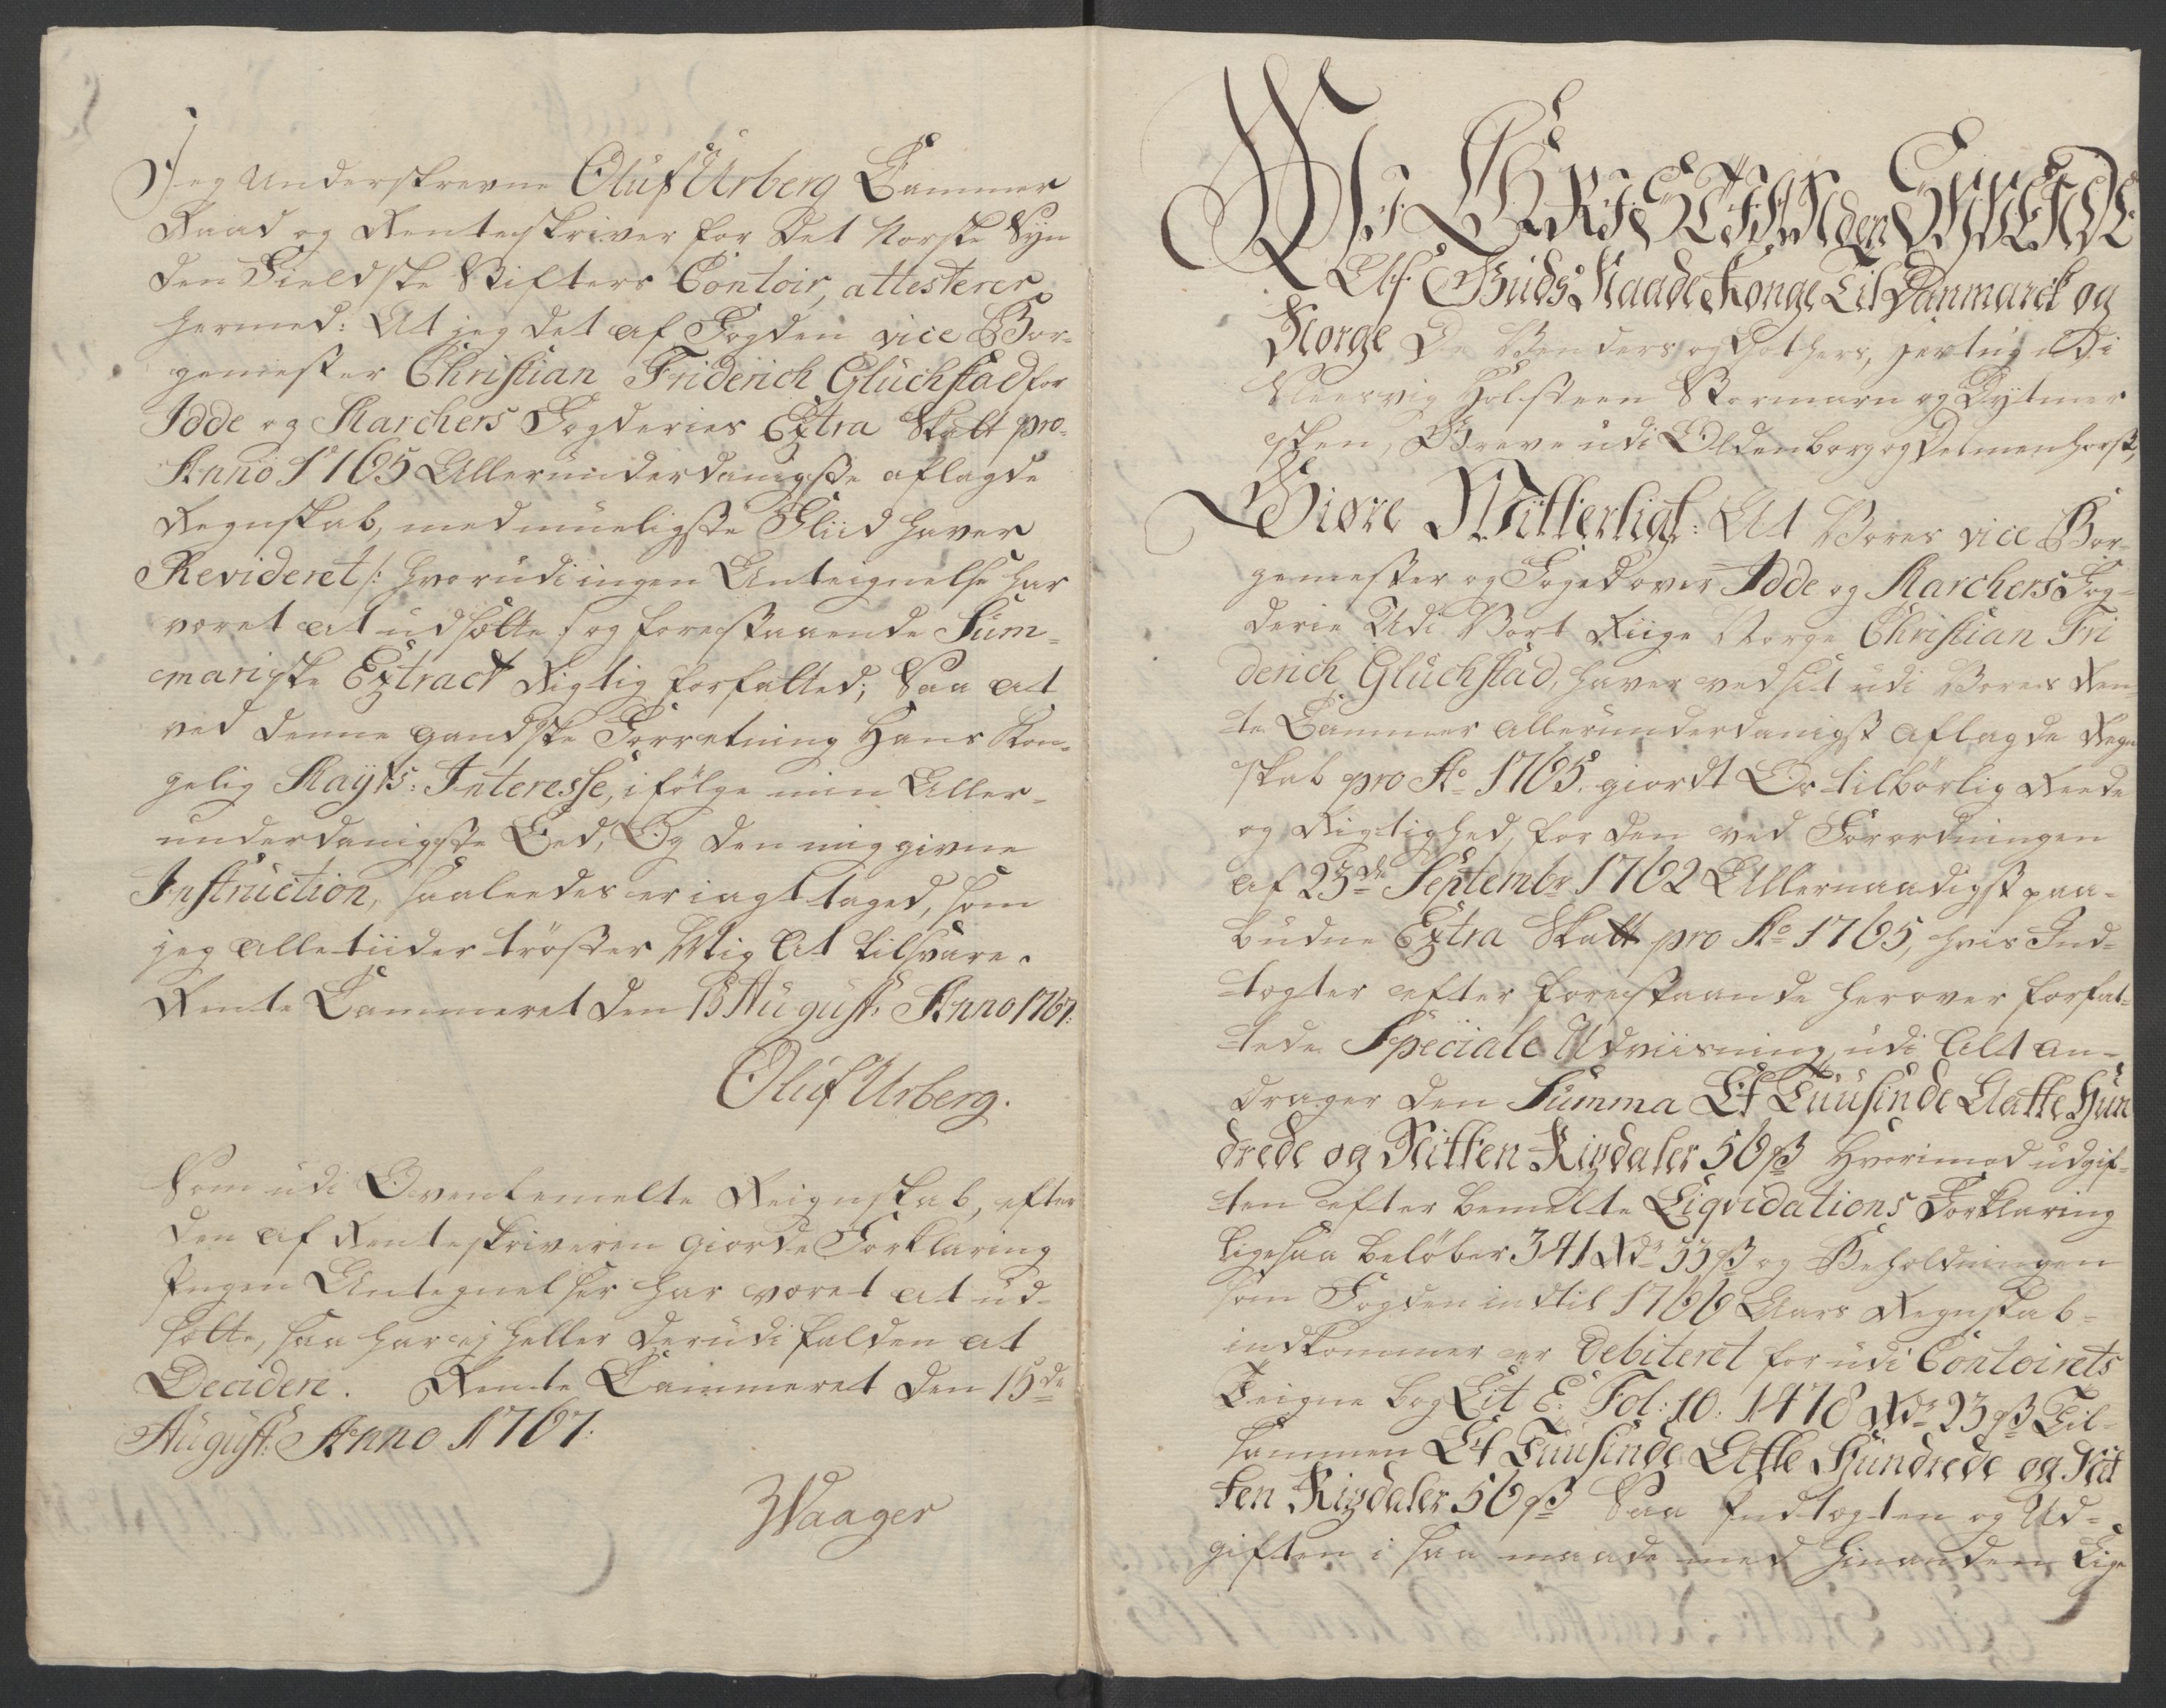 Jeg Underskrevne Oluf Urberg Cammer
Raad og Renteskriver for Det Norske Syn
den Fieldske Stifters Contoir, attesterer
hermed: At jeg det af Fogden vice Bor-
gemester Christian Friderich Glückstad for
Idde og Marchers Fogderies Extra Skatt pro
Anno 1765 Allerunderdanigste aflagde
Regnskab, med mueligste Fliid haver
Revideret /: hvorudi ingen Anteignelse har
været at udsætte :/ og forestaaende Sum-
mariske Extract Rigtig forfatted; Saa at
ved denne gandske Forretning Hans Kon-
gelig Mayts: Interesse, i følge min Aller-
underdanigste Eed, Og den mig givne
Instruction, saaledes er iagttaged, som
jeg alle tiider trøster Mig at tilsvare.
Rente Cammeret den 15 August: Anno 1767:
Oluf Urberg.
Som udi Ovenbemelte Reignskab, efter
den af Renteskriveren giorde Forklaring
Ingen Antegnelser har været at ud-
sætte, saa har ej heller derudi falden at
Decidere. Rente Cammeret den 15de
August: Anno 1767:
Waager
Wi CHRISTIAN den SYVENDE
Af Guds Naade Konge Til Danmarck og
Norge De Wenders og Gothers, Hertug udi
Sleesvig Holsteen Stormarn og Dytmer
sken, Greve udi Oldenborg og Delmenhorst,
Giøre Witterligt: At Vores vice Bor-
gemester og Foged over Idde og Marchers Fog-
derie Udi Vort Riige Norge Christian Fri
derich Glückstad, haver ved sit udi Vores Ren
te Cammer allerunderdanigst aflagde Regn
skab pro Ao 1765. giordt Os tilbørlig Reede
og Rigtighed, for den ved Forordningen
af 23de Septembr 1762 Allernaadigst paa-
budne Extra Skatt pro Ao 1765, hvis Ind-
tægter efter forestaaende herover forfat-
tede Speciale Udviisning, udi Alt an-
drager den Summa Et Tuusinde Aatte Hun
drede og Nitten Rixdaler 56 ß Hvorimod udgif-
ten efter bemelte Liqvidations Forklaring
ligesaa beløber 341 Rdr 33 ß og Beholdningen
som Fogden indtil 1766 Aars Regnskab
indkommer er Debiteret for udi Contoirets
Teigne bog Lit E: Fol: 10: 1478 Rdr 23 ß Til-
sammen Et Tuusinde Atte Hundrede og Nit
ten Rixdaler 56 ß Saa Indtægten og Ud-
giften i saa maade med hinanden Lige